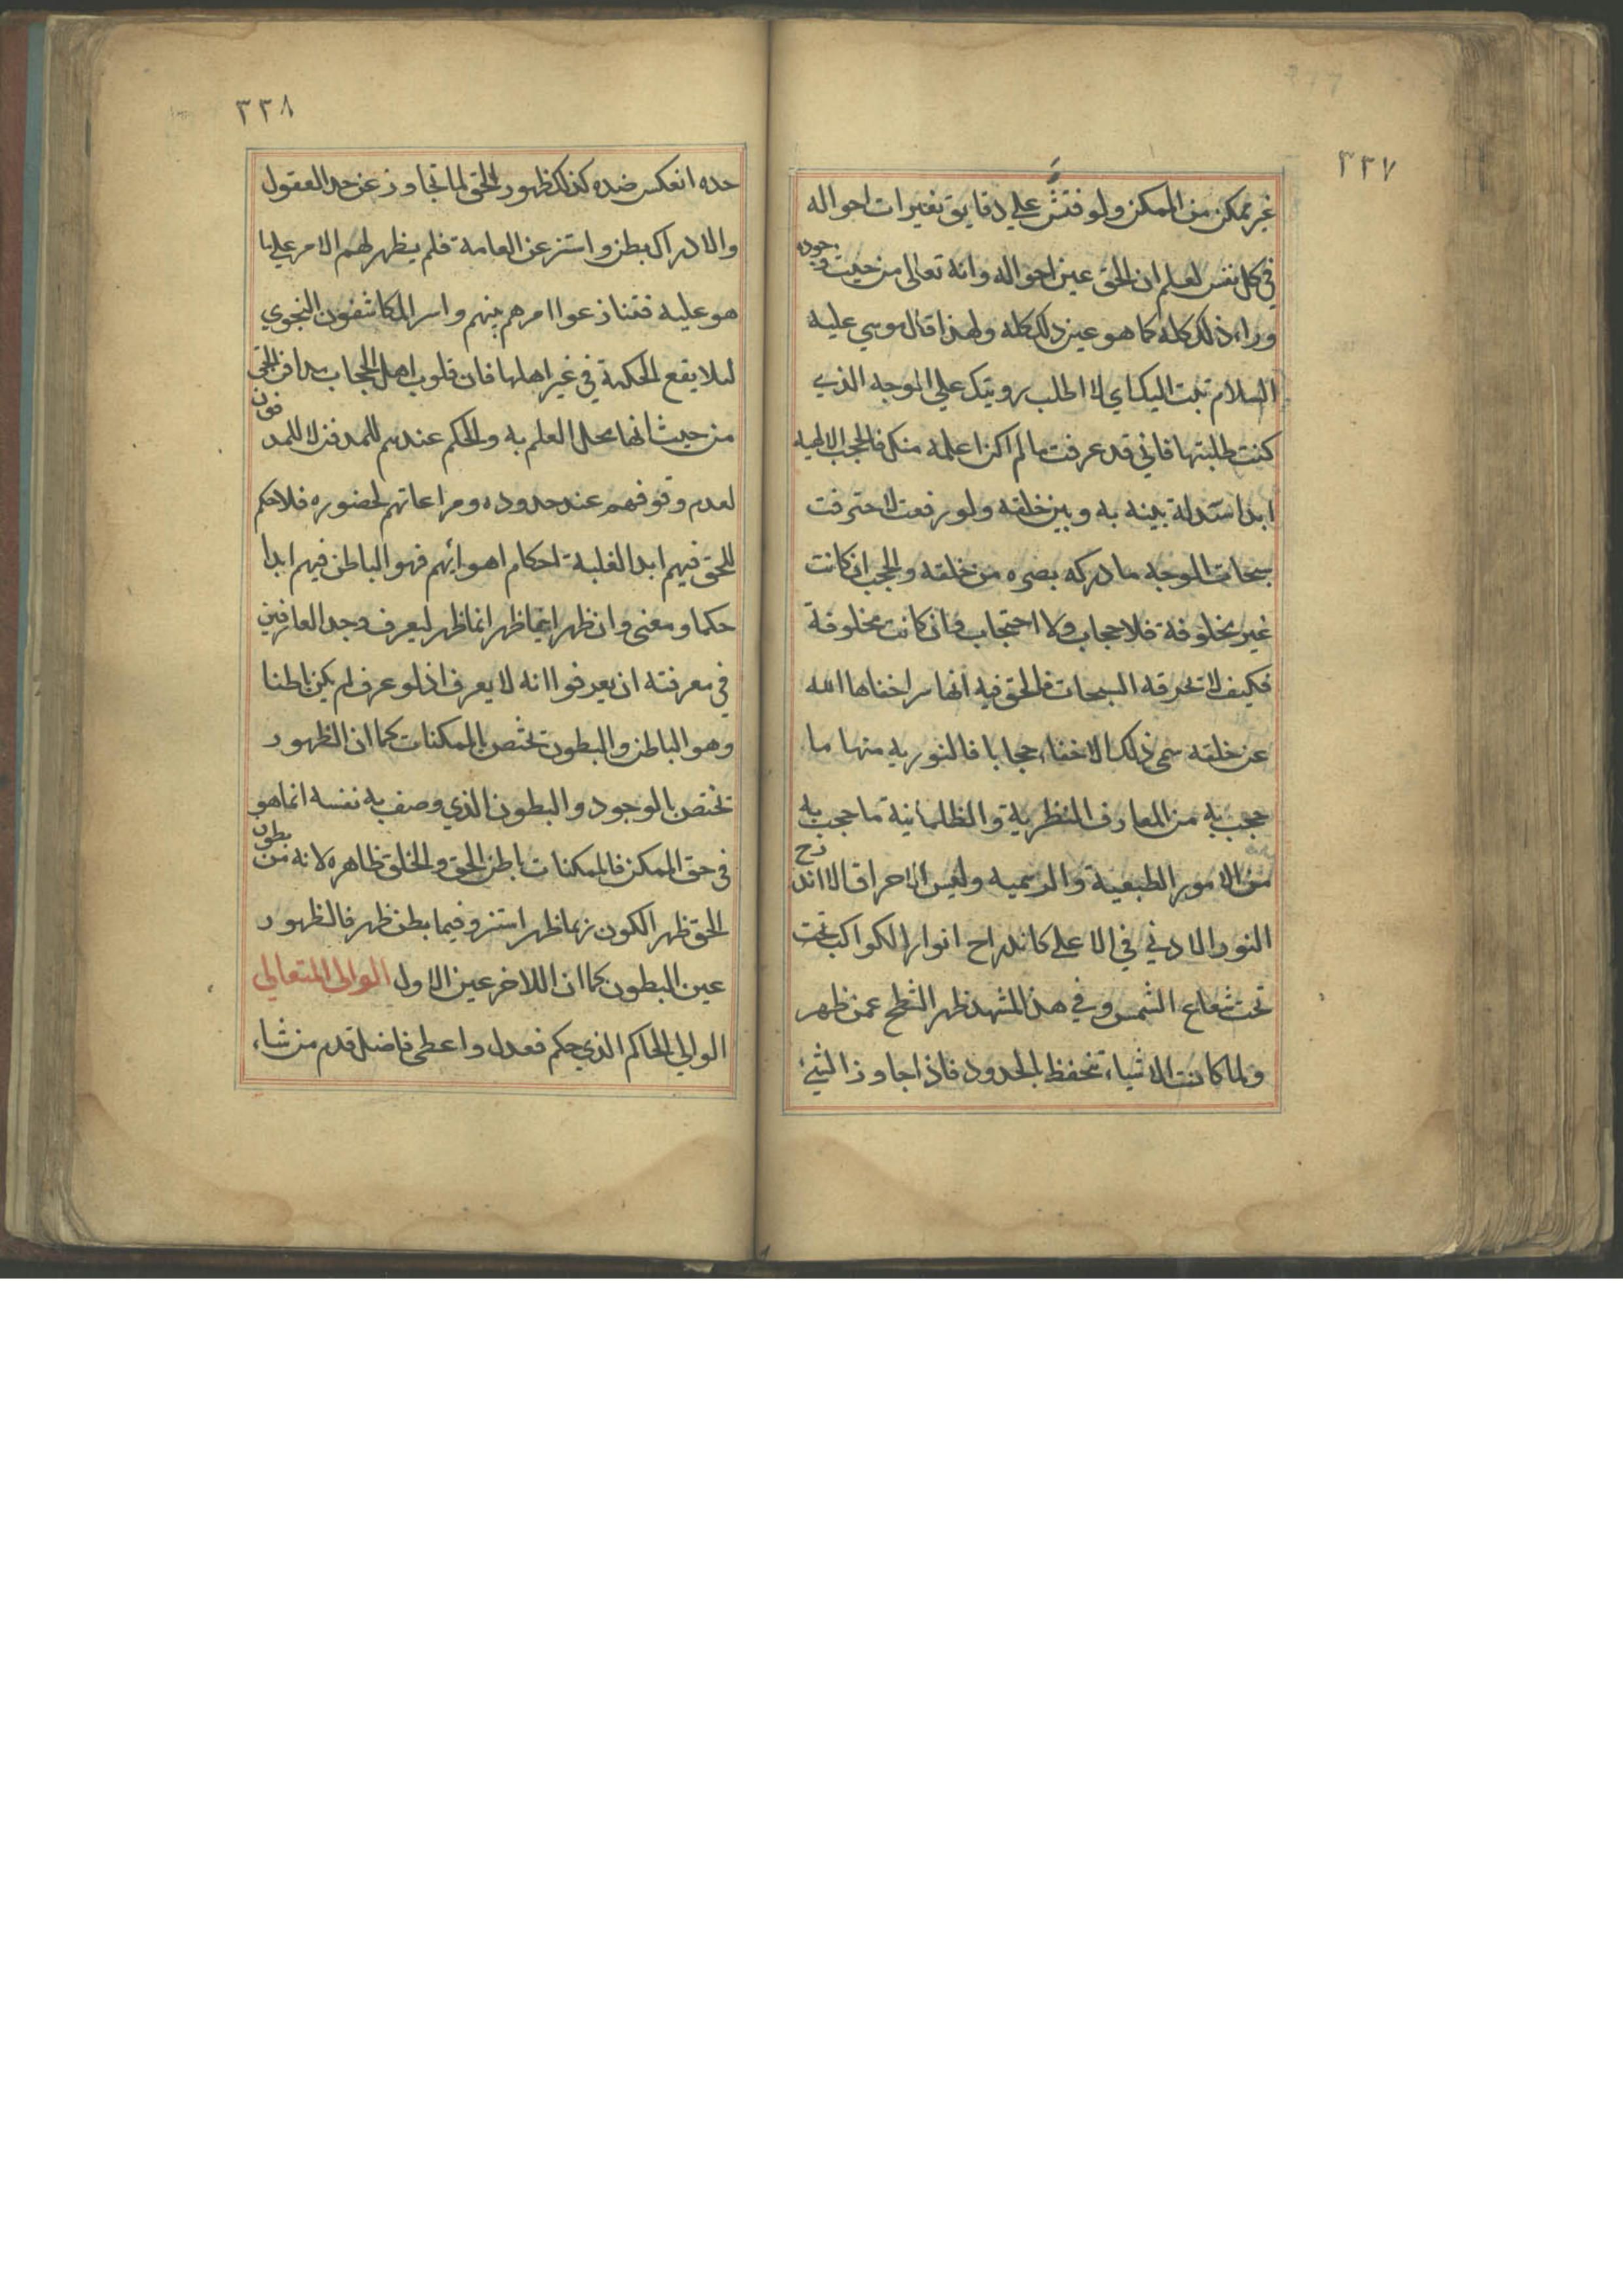 ٣٣٧
غير ممكن من الممكن ولو فتش علي دقايق تغيرات احواله
في كل نفس لعلم ان الحق عين احواله وانه تعالى من حيث وجوده
وراء ذلك كله كما هو عين ذلك كله ولهذا قال موسي عليه
السلام تبت اليك اي لا اطلب رويتك علي الوجه الذي
كنت طلبتها فاني قد عرفت ما لم اكن اعلمه منك فالحجب الالهيه
ابدا مسدلة بينه به وبين خلقه ولو رفعت لاحترقت
سبحات الوجه ما دركه بصره من خلقه والحجب ان كانت
غير مخلوقة فلا حجاب ولا احتجاب وان كانت مخلوقة
فكيف لا تحرقه السبحات فالحق فيه انها سر اخفاها الله
عن خلقه سمى ذلك الاخفاء حجابا فالنوريه منها ما
حجب به من المعارف النظرية والظلمانية ما حجب به
من الامور الطبيعية والرسميه وليس الاحراق الا اندراج
النور الادني في الاعلي كاندراج انوار الكواكب تحت
تحت شعاع الشمس وفي هذا المشهد ظهر الشطح عمن ظهر
ولما كانت الاشياء تحفظ بالحدود فاذا جاوز الشئ
٣٣٨
حده انعكس ضده كذلك ظهور الحق لما تجاوز عن حد العقول
والادراك بطن واستتر عن العامة فلم يظهر لهم الامر علي ما
هو عليه فتنازعوا امرهم بينهم واسر المكاشفون النجوي
لئلا يقع الحكمة في غير اهلها فان قلوب اهل الحجاب مدافن الحق
من حيث انها محل العلم به والحكم عندهم للمدفن لا للمدفون
لعدم وقوفهم عند حدوده ومراعاتهم لحضوره فلا حكم
للحق فيهم ابدا لغلبة احكام اهوائهم فهو الباطن فيهم ابدا
حكما ومعنى وان ظهر انما ظهر ليعرف وجد العارفين
في معرفته ان يعرفوا انه لا يعرف اذ لو عرف لم يكن باطنا
وهو الباطن والبطون تختص بالممكنات كما ان الظهور
تختص بالوجود والبطون الذي وصف به نفسه انما هو
في حق الممكن فالممكنات باطن الحق والخلق ظاهره لانه من بطون
الحق ظهر الكون فيما ظهر استتر وفيما بطن ظهر فالظهور
عين البطون كما ان اللاخر عين الاول الوالى المتعالي
الوالي الحاكم الذي حكم فعدل واعطى فاضل قدم من شاء